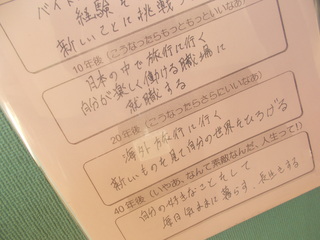 バイト
経験を
新しいことに挑戦
10年後(こうなったらもっともっといいなあ)
日本の中で旅行に行く
自分が楽しく働ける職場に
就職する
20年後(こうなったらさらにいいなあ)
海外旅行に行く
新しいものを見て自分の世界をひろげる
40年後(いやあ、なんて素敵なんだ、人生って!)
自分の好きなことをして
毎日気ままに暮らす、長生きする